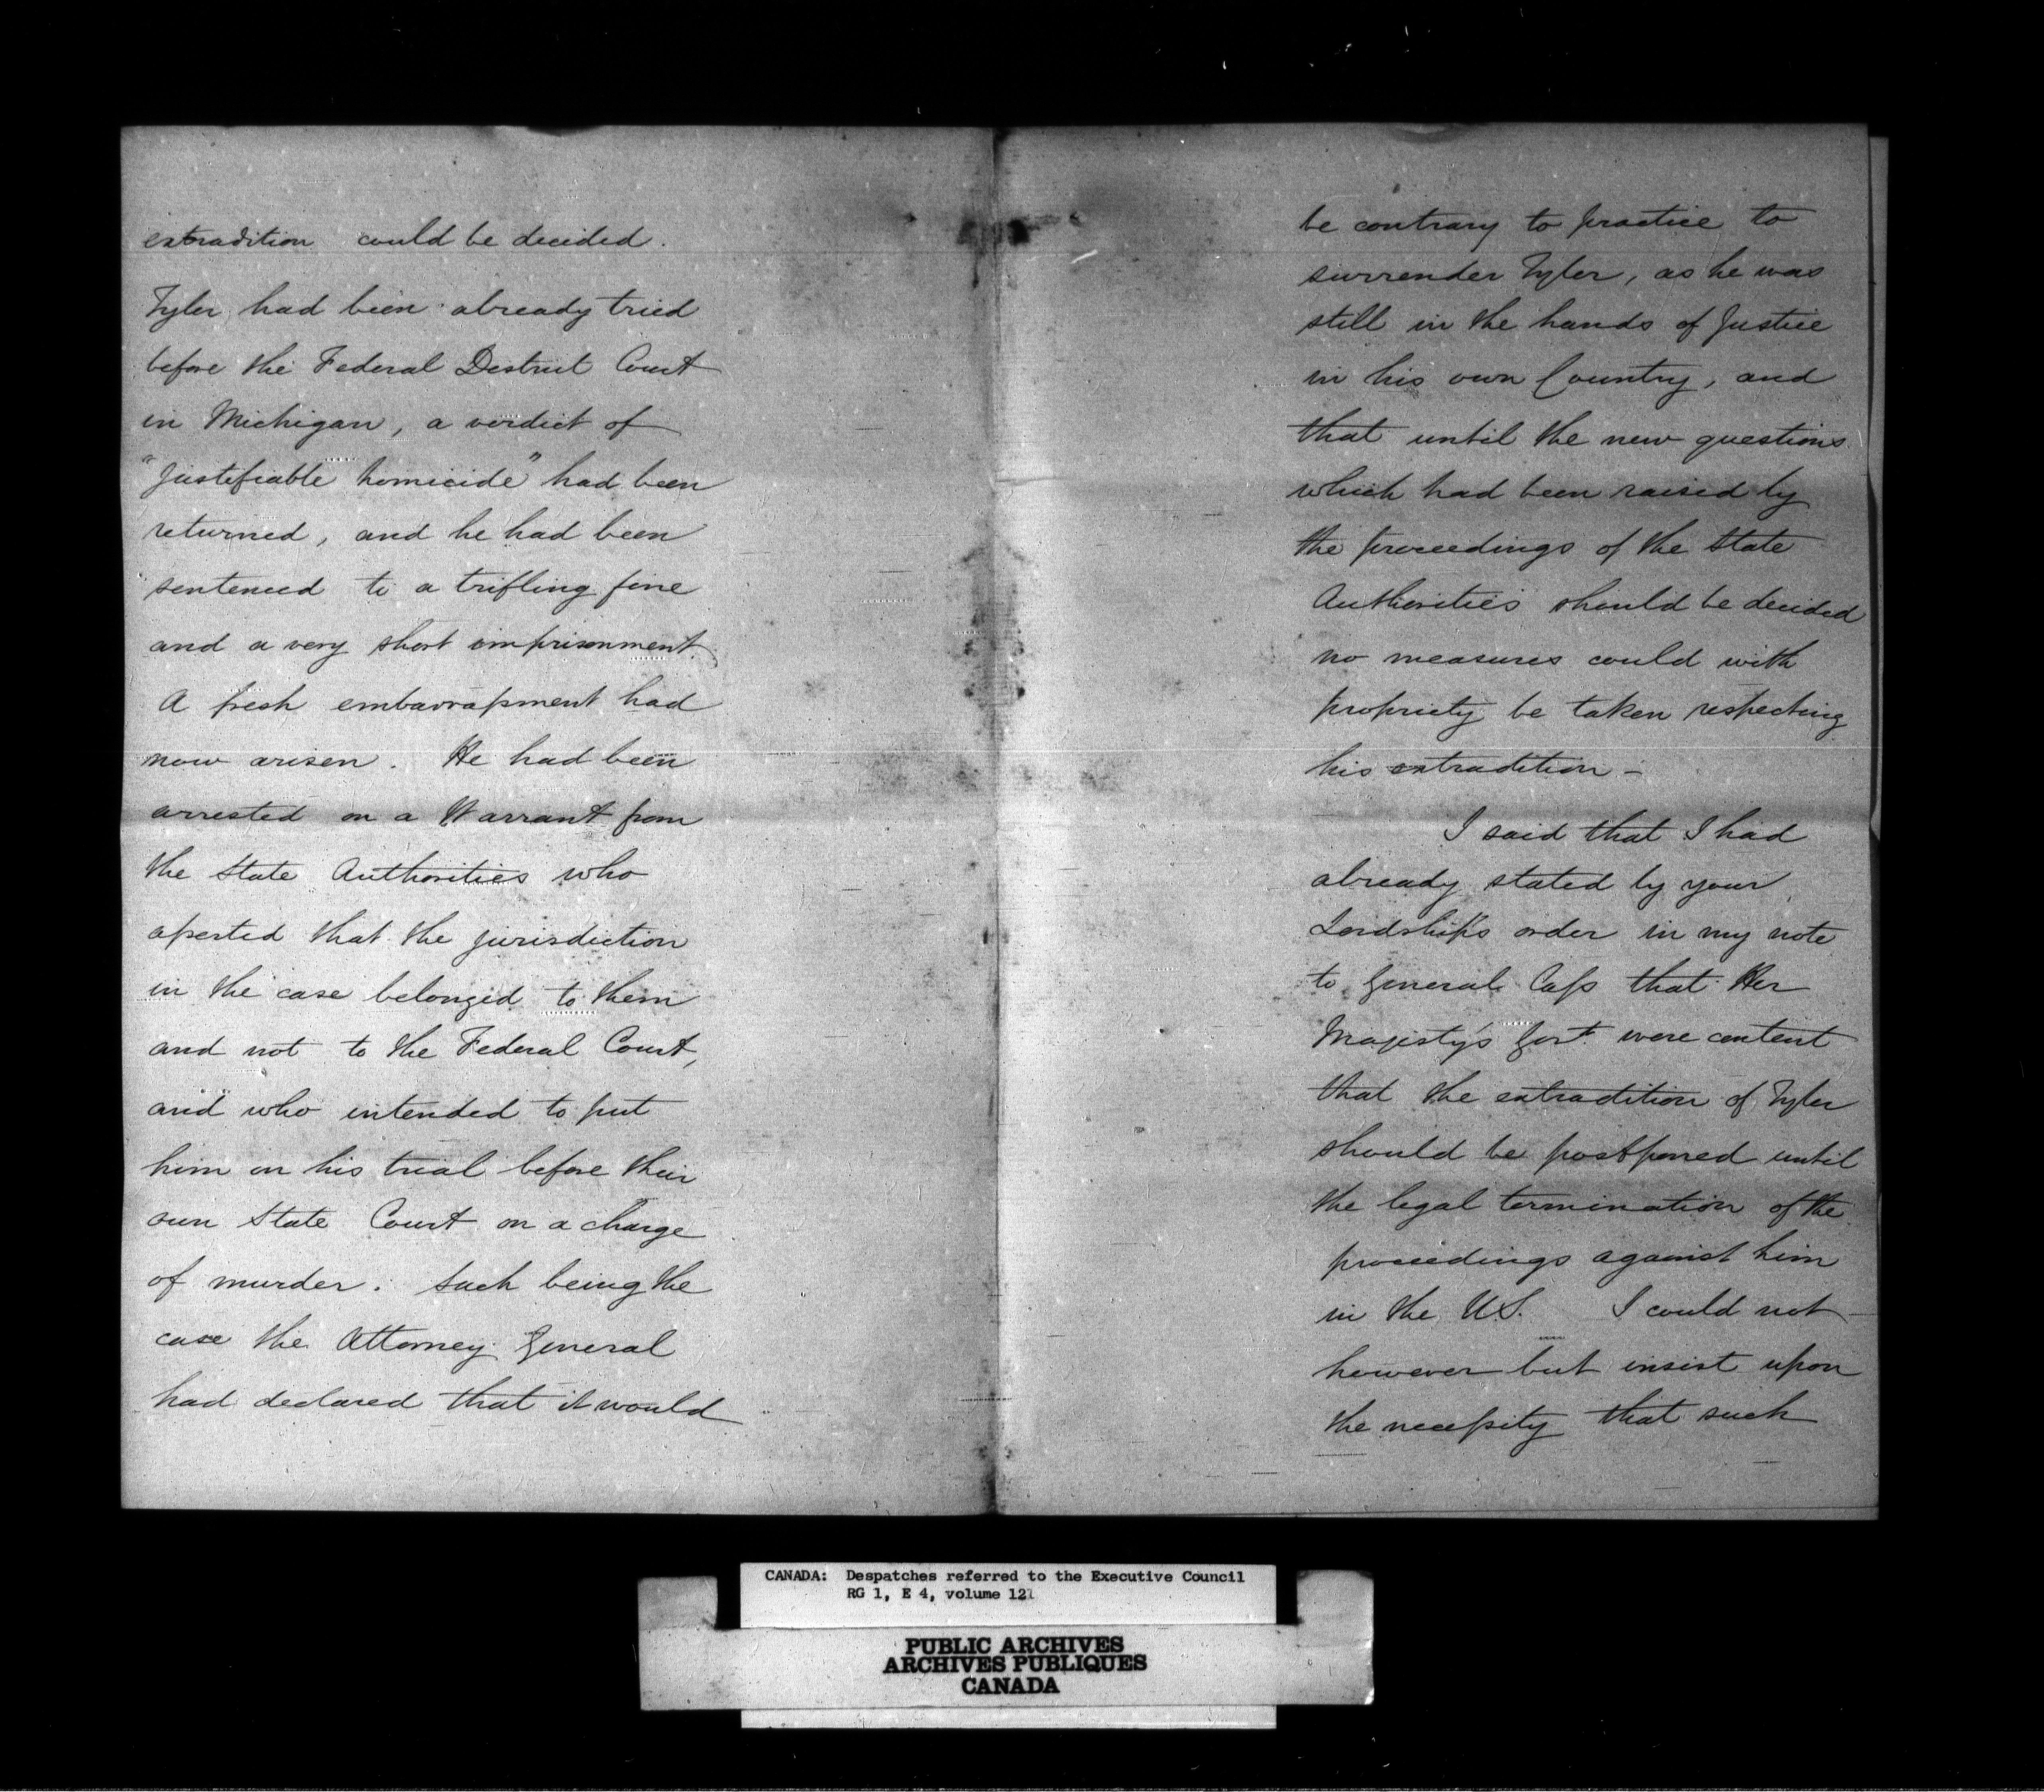 extradition could be decided.
Tyler had been already tried
before the Federal District Court
in Michigan, a verdict of
"justifiable homicide" had been
returned, and he had been
sentenced to a trifling fine
and a very short imprisonment.
A fresh embarrassment had
now arisen. He had been
arrested on a Warrant from
the State Authorities who
asserted that the jurisdiction
in the case belonged to them
and not to the Federal Court,
and who intended to put
him on his trial before their
own State Court on a charge
of murder. Such being the
case the Attorney General
had declared that it would
be contrary to practice to
surrender Tyler, as he was
still in the hands of Justice
in his own Country, and
that until the new questions
which had been raised by
the proceedings of the State
Authorities should be decided
no measures could with
propriety be taken respecting
his extradition –
I said that I had
already stated by your
Lordship's order in my note
to General Cass that Her
Majesty's Govt. were content
that the extradition of Tyler
should be postponed until
the legal termination of the
proceedings against him
in the U.S. I could not
however but insist upon
the necessity that such
CANADA: Despatches referred to the Executive Council
RG 1, E 4, volume 121
PUBLIC ARCHIVES
ARCHIVES PUBLIQUES
CANADA